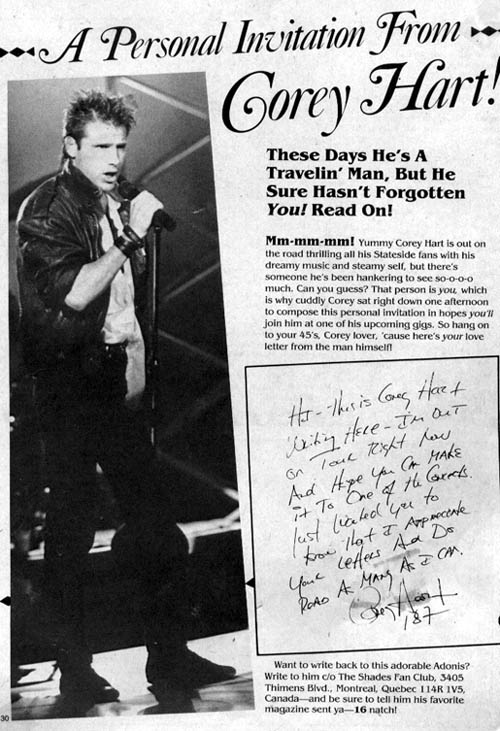 A Personal Invitation From
Corey Hart!
These Days He's A
Travelin' Man, But He
Sure Hasn't Forgotten
You! Read On!
Mm-mm-mm! Yummy Corey Hart is out on
the road thrilling all his Stateside fans with his
dreamy music and steamy self, but there's
someone he's been hankering to see so-o-o-o
much. Can you guess? That person is you, which
is why cuddly Corey sat right down one afternoon
to compose this personal invitation in hopes you'll
join him at one of his upcoming gigs. So hang on
to your 45's, Corey lover, 'cause here's your love
letter from the man himself!
Hi - This is Corey Hart
Writing Here - I'm Out
on Tour Right Now
And Hope You Can Make
it To One of the Concerts.
Just Wanted You to
know that I Appreciate
Your Letters And Do
Read As Many As I can.
Corey Hart
187
Want to write back to this adorable Adonis?
Write to him c/o The Shades Fan Club, 3405
Thimens Blvd., Montreal, Quebec 114R 1V5,
Canada—and be sure to tell him his favorite
magazine sent ya—16 natch!
30